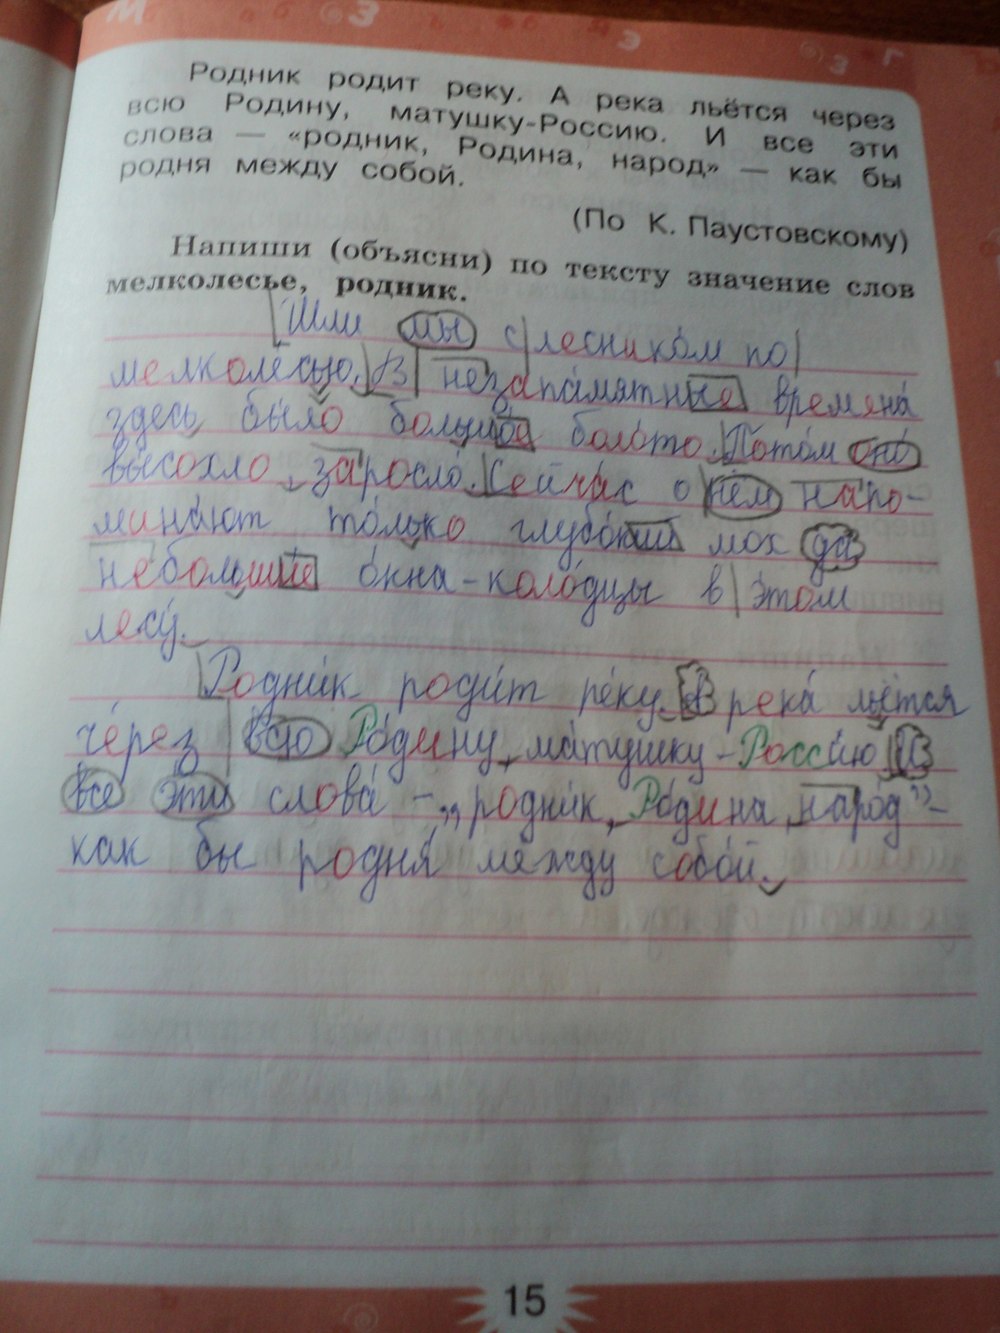 Родник родит реку. А река льётся через
всю Родину, матушку-Россию. И все эти
слова — «родник, Родина, народ» — как бы
родня между собой.
(По К. Паустовскому)
Напиши (объясни) по тексту значение слов
мелколесье, родник.
Шли мы с лесником по
мелколесью. В незапамятные времена
здесь было большое болото. Потом оно
высохло, заросло. Сейчас о нём напо-
минают только глубокий мох да
небольшие окна-колодцы в этом
лесу.
Родник родит реку. А река льётся
через всю Родину, матушку-Россию. И
все эти слова – „родник, Родина, народ” –
как бы родня между собой.
15